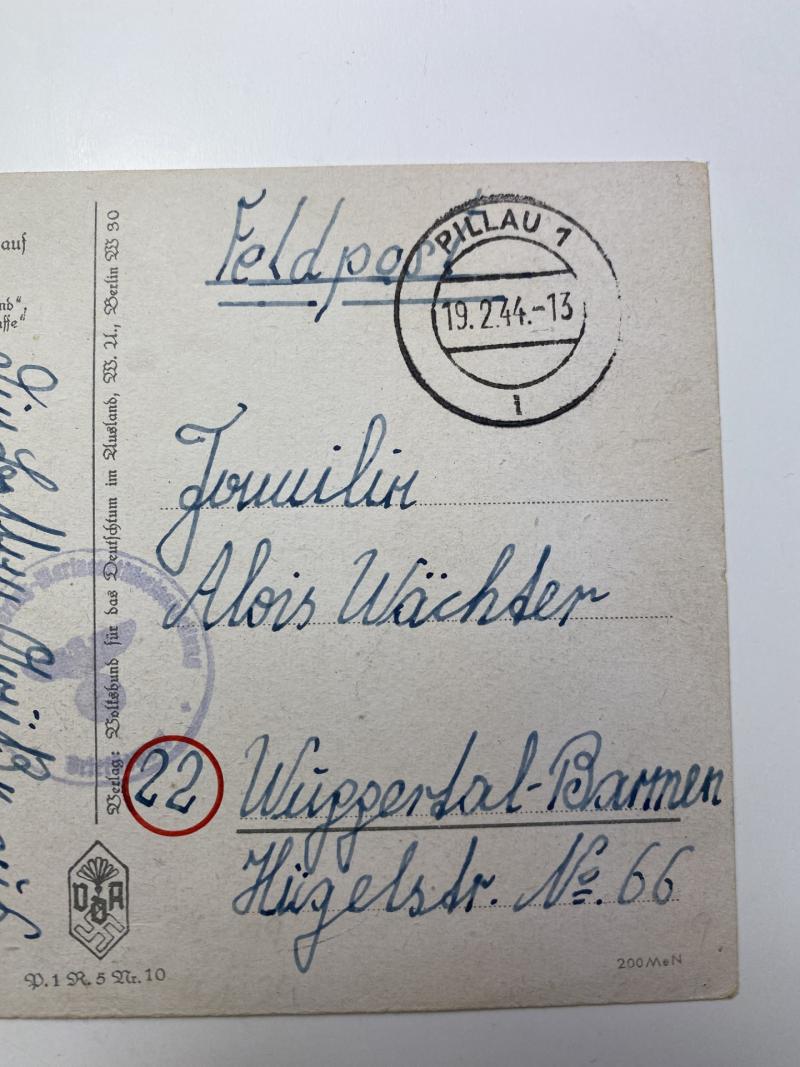 Feldpost
PILLAU 1
19.2.44.-13
i
Familie
Alois Wächter
22 Wuppertal-Barmen
Hügelstr. No. 66
auf
nd",
ffe"
Verlag: Volksbund für das Deutschtum im Ausland, W. U., Berlin W 30
VDA
P. 1 R. 5 Nr. 10
200 MeN